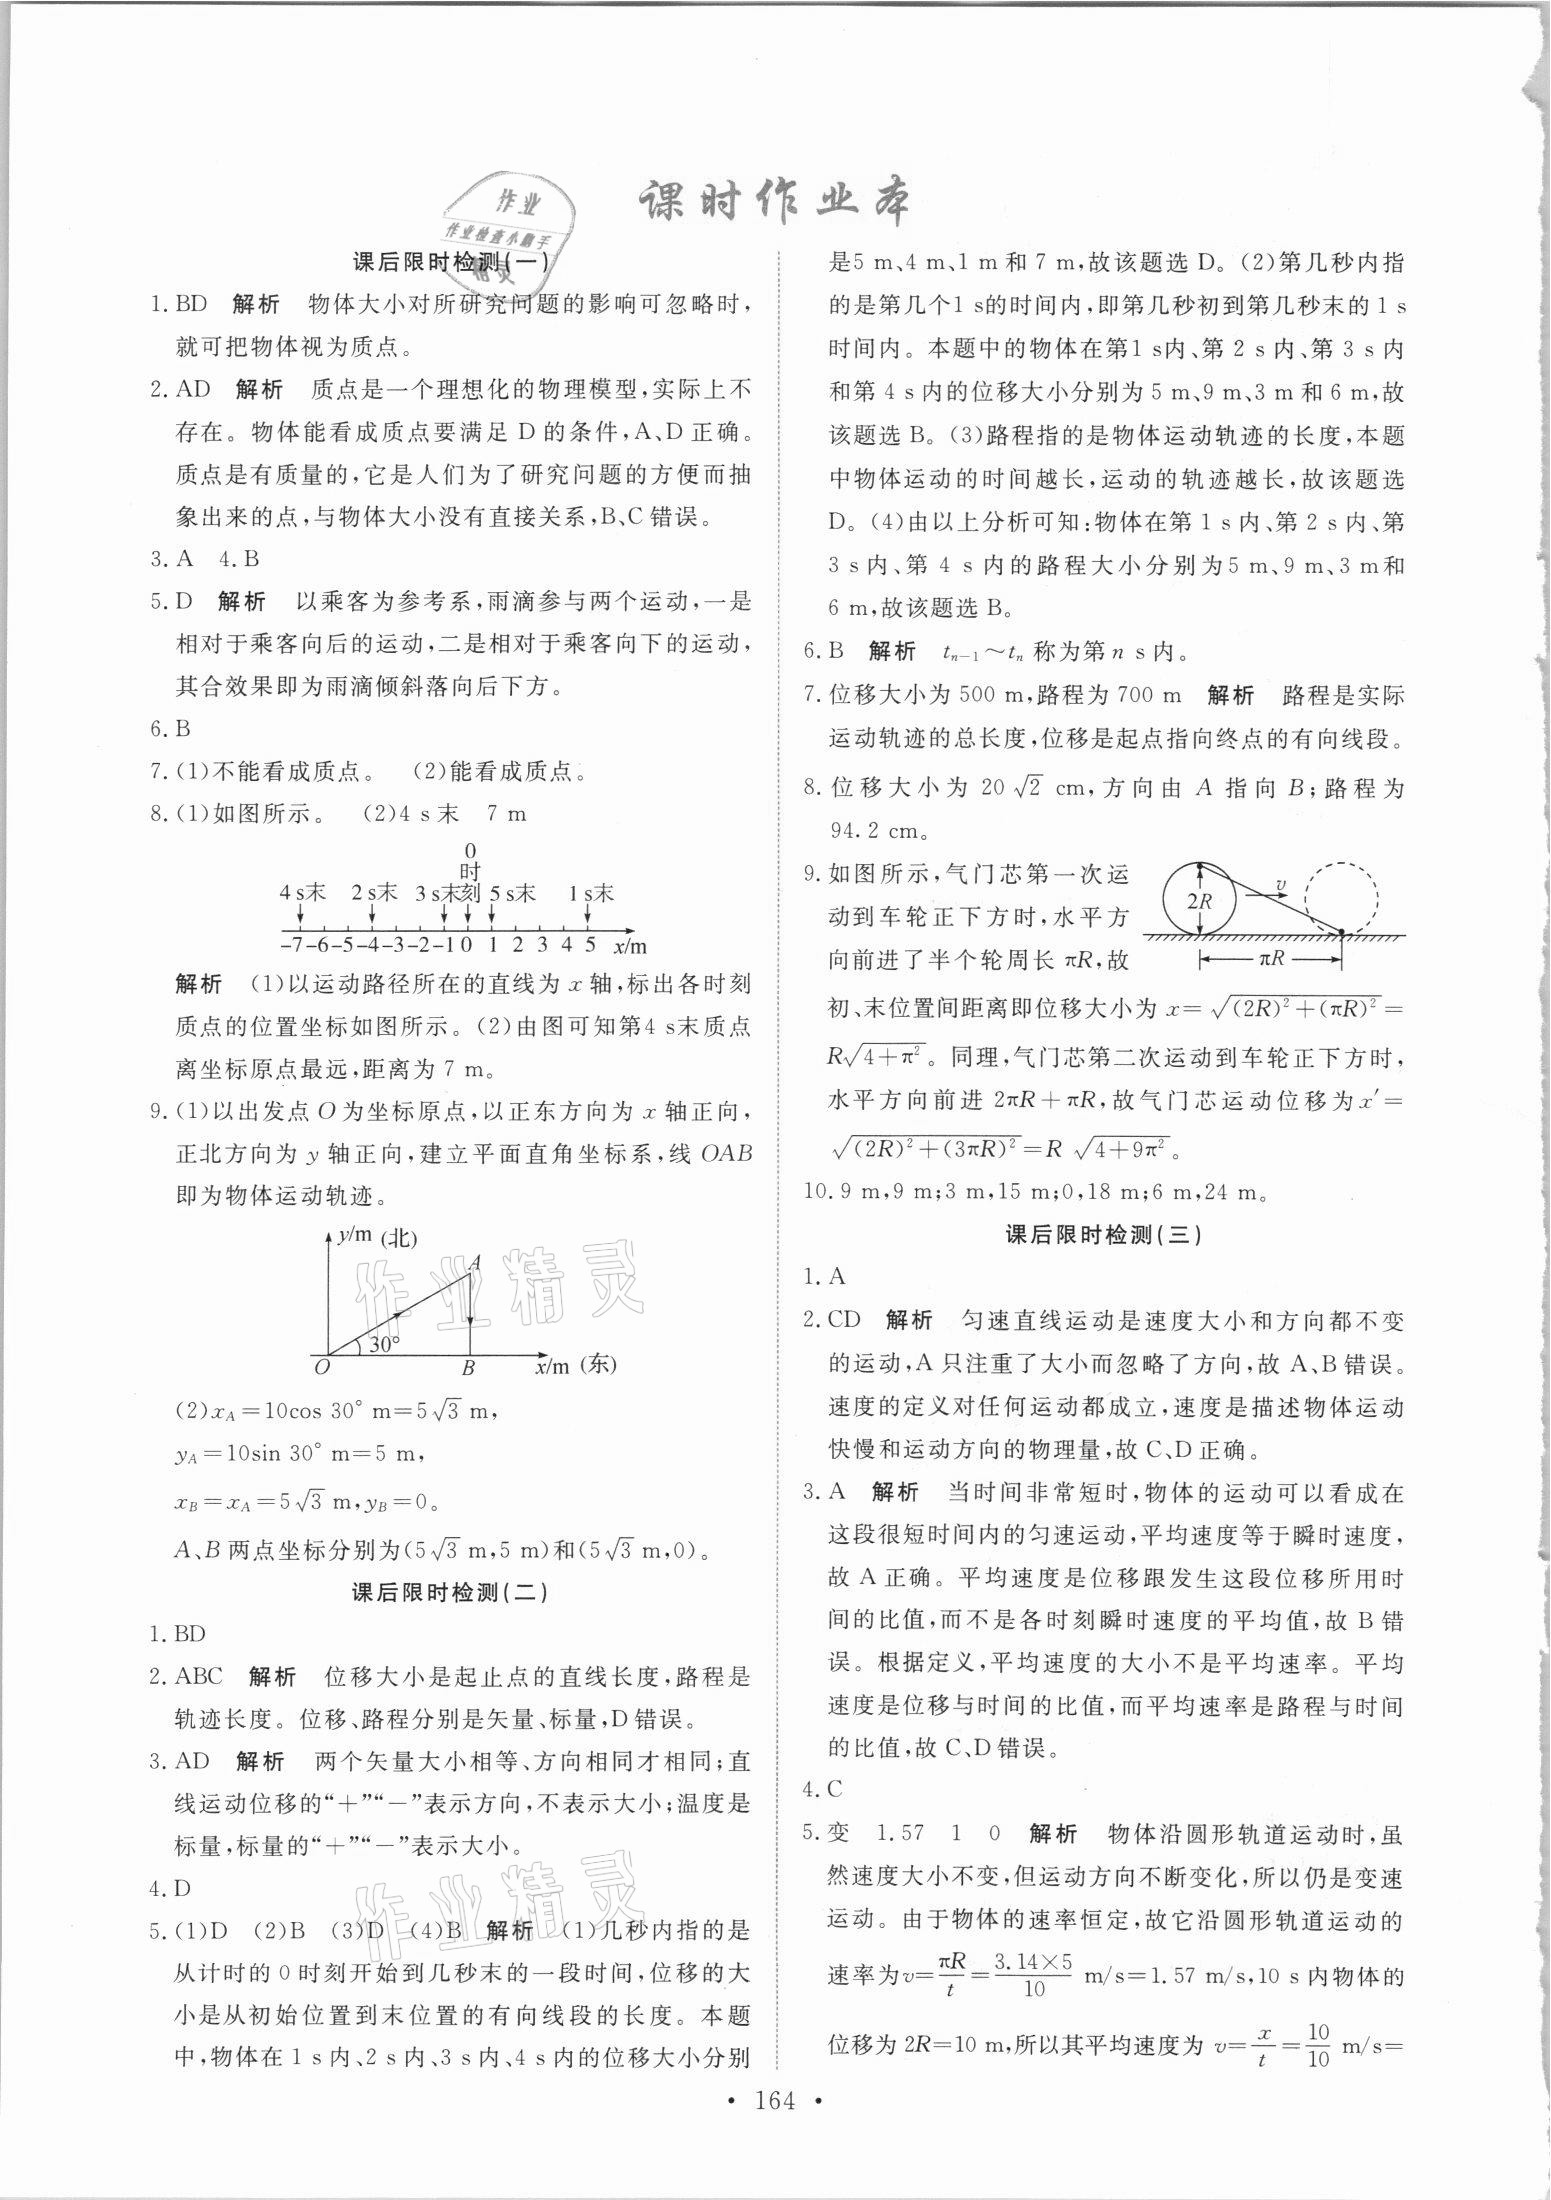 课时作业本
作业
作业检查小助手
精灵
课后限时检测(一)
1. BD 解析 物体大小对所研究问题的影响可忽略时,
就可把物体视为质点。
2. AD 解析 质点是一个理想化的物理模型,实际上不
存在。物体能看成质点要满足 D 的条件,A、D 正确。
质点是有质量的,它是人们为了研究问题的方便而抽
象出来的点,与物体大小没有直接关系,B、C 错误。
3. A 4. B
5. D 解析 以乘客为参考系,雨滴参与两个运动,一是
相对于乘客向后的运动,二是相对于乘客向下的运动,
其合效果即为雨滴倾斜落向后下方。
6. B
7. (1)不能看成质点。 (2)能看成质点。
8. (1)如图所示。 (2)4 s末 7 m
0
时
4 s末 2 s末 3 s末 刻 5 s末 1 s末
-7 -6 -5 -4 -3 -2 -1 0 1 2 3 4 5 x/m
解析 (1)以运动路径所在的直线为 x 轴,标出各时刻
质点的位置坐标如图所示。(2)由图可知第4 s末质点
离坐标原点最远,距离为 7 m。
9. (1)以出发点 O 为坐标原点,以正东方向为 x 轴正向,
正北方向为 y 轴正向,建立平面直角坐标系,线 OAB
即为物体运动轨迹。
y/m (北)
A
30°
O B x/m (东)
作业精灵
(2)x_A=10cos 30° m=5√3 m,
y_A=10sin 30° m=5 m,
x_B=x_A=5√3 m,y_B=0。
A、B 两点坐标分别为(5√3 m,5 m)和(5√3 m,0)。
课后限时检测(二)
1. BD
2. ABC 解析 位移大小是起止点的直线长度,路程是
轨迹长度。位移、路程分别是矢量、标量,D 错误。
3. AD 解析 两个矢量大小相等、方向相同才相同;直
线运动位移的“+”“-”表示方向,不表示大小;温度是
标量,标量的“+”“-”表示大小。
4. D
作业精灵
5. (1)D (2)B (3)D (4)B 解析 (1)几秒内指的是
从计时的 0 时刻开始到几秒末的一段时间,位移的大
小是从初始位置到末位置的有向线段的长度。本题
中,物体在 1 s内、2 s内、3 s内、4 s内的位移大小分别
是5 m、4 m、1 m 和 7 m,故该题选 D。(2)第几秒内指
的是第几个1 s的时间内,即第几秒初到第几秒末的 1 s
时间内。本题中的物体在第1 s内、第 2 s内、第 3 s内
和第 4 s内的位移大小分别为 5 m、9 m、3 m 和 6 m,故
该题选 B。(3)路程指的是物体运动轨迹的长度,本题
中物体运动的时间越长,运动的轨迹越长,故该题选
D。(4)由以上分析可知:物体在第 1 s内、第 2 s内、第
3 s内、第 4 s内的路程大小分别为5 m、9 m、3 m和
6 m,故该题选 B。
6. B 解析 t_{n-1}～t_n 称为第 n s内。
7. 位移大小为 500 m,路程为 700 m 解析 路程是实际
运动轨迹的总长度,位移是起点指向终点的有向线段。
8. 位移大小为 20√2 cm,方向由 A 指向 B;路程为
94.2 cm。
9. 如图所示,气门芯第一次运
动到车轮正下方时,水平方
向前进了半个轮周长 πR,故
2R v
πR
初、末位置间距离即位移大小为 x=√((2R)²+(πR)²)=
R√(4+π²)。同理,气门芯第二次运动到车轮正下方时,
水平方向前进 2πR+πR,故气门芯运动位移为x′=
√((2R)²+(3πR)²)=R √(4+9π²)。
10. 9 m,9 m;3 m,15 m;0,18 m;6 m,24 m。
课后限时检测(三)
1. A
2. CD 解析 匀速直线运动是速度大小和方向都不变
的运动,A 只注重了大小而忽略了方向,故 A、B 错误。
速度的定义对任何运动都成立,速度是描述物体运动
快慢和运动方向的物理量,故 C、D 正确。
3. A 解析 当时间非常短时,物体的运动可以看成在
这段很短时间内的匀速运动,平均速度等于瞬时速度,
故 A 正确。平均速度是位移跟发生这段位移所用时
间的比值,而不是各时刻瞬时速度的平均值,故 B 错
误。根据定义,平均速度的大小不是平均速率。平均
速度是位移与时间的比值,而平均速率是路程与时间
的比值,故 C、D 错误。
4. C
5. 变 1.57 1 0 解析 物体沿圆形轨道运动时,虽
然速度大小不变,但运动方向不断变化,所以仍是变速
运动。由于物体的速率恒定,故它沿圆形轨道运动的
速率为v=πR/t=3.14×5/10 m/s=1.57 m/s,10 s 内物体的
位移为 2R=10 m,所以其平均速度为 v=x/t=10/10 m/s=
• 164 •